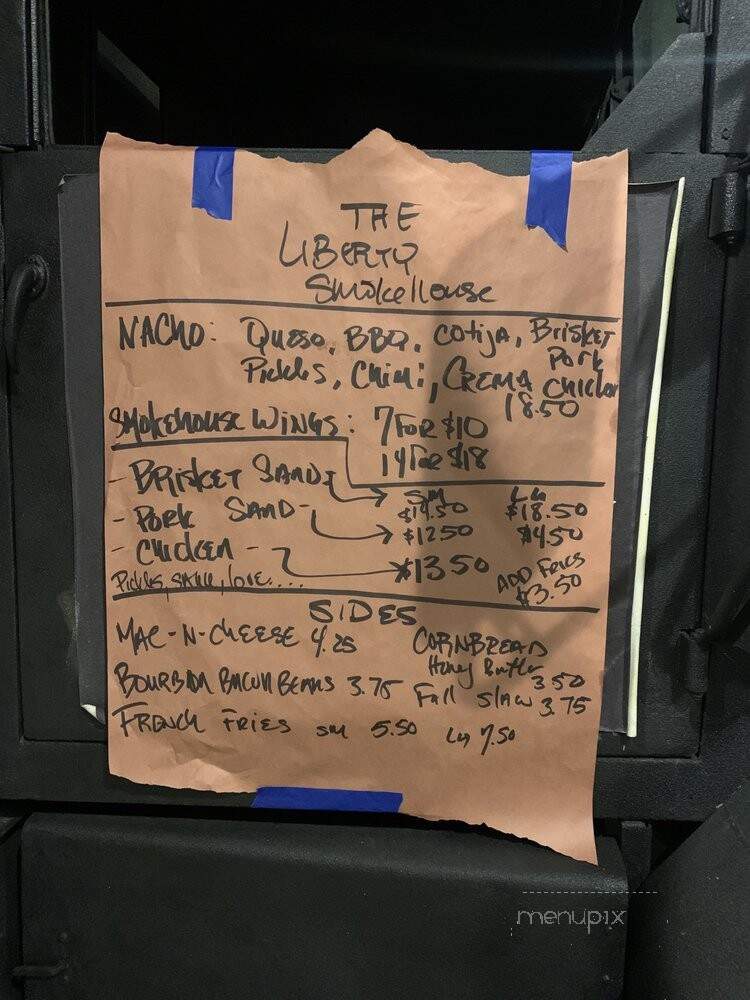 THE
LIBERTY
SmokeHouse
NACHO: Queso, BBQ, Cotija, Brisket
Pork
Pickles, Chimi, CREMA Chicken
18.50
SMOKEHOUSE WINGS: 7 FOR $10
14 For $18
- BRISKET SAND
SM LG
$14.50 $18.50
- Pork SAND - $12.50 $14.50
- Chicken - $13.50
ADD Fries
Pickles, , love.... $3.50
SIDES
MAC-N-CHEESE 4.25 CORNBREAD
Honey Butter
3.50
BOURBON BACON BEANS 3.75 Fall slaw 3.75
FRENCH FRIES SM 5.50 LG 7.50
menupix